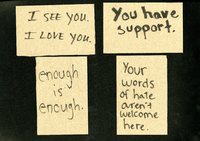 I SEE YOU.
I LOVE YOU.
You have
support.
enough
is
enough.
Your
words
of hate
aren't
welcome
here.